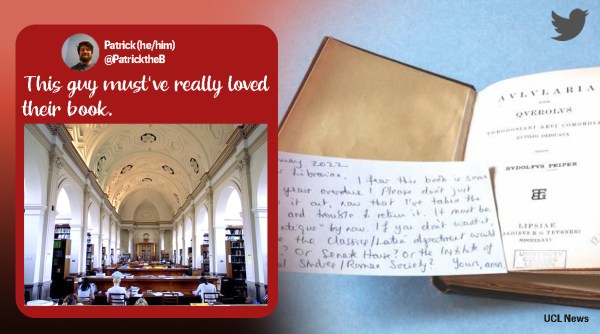 Patrick (he/him)
@PatricktheB
This guy must've really loved
their book.
2022
Librarian, I fear this book is some
years overdue! Please don't just
it out, now that I've taken the
and trouble to return it. It must be
by now. If you don't want it,
the Classics/Latin department would
? Or Senate House? Or the Institute of
Studies/Roman Society? Yours, anon
AVLVLARIA
SIVE
QVEROLVS
THEODOSIANI AEVI COMOEDIA
DEDICATA
RVDOLPVS PEIPER
LIPSIAE
AEDIBVS B G TEVBNERI
UCL News